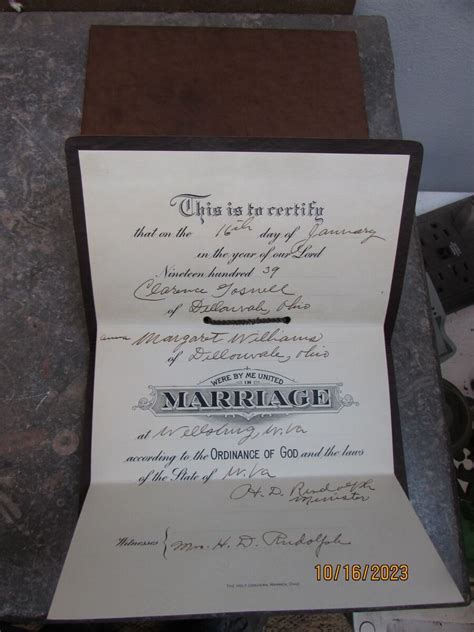 This is to certify
that on the 16th day of January
in the year of our Lord
Nineteen hundred 39
Clarence Tosnell
of Dillonvale, Ohio
Margaret Williams
of Dillonvale, Ohio
WERE BY ME UNITED
IN
MARRIAGE
at Wellsburg, W.Va
according to the ORDINANCE OF GOD and the laws
of the State of W.Va
H. D. Rudolph
Minister
Witnesses Mrs. H. D. Rudolph
10/16/2023